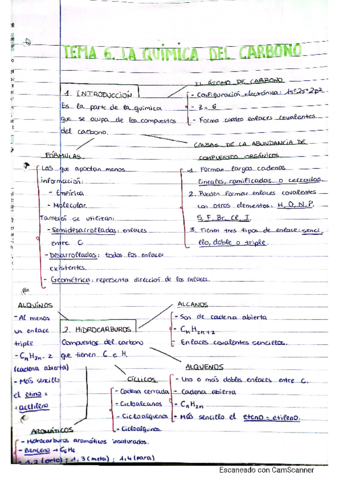 TEMA 6. LA QUÍMICA DEL CARBONO
EL ÁTOMO DE CARBONO
1. INTRODUCCIÓN
- Configuración electrónica: 1s² 2s² 2p²
Es la parte de la química
- Z = 6
que se ocupa de los compuestos
- Forma cuatro enlaces covalentes
del carbono.
CAUSAS DE LA ABUNDANCIA DE
COMPUESTOS ORGÁNICOS
FÓRMULAS
Las que aportan menos
información:
- Empírica
- Molecular.
También se utilizan:
- Semidesarrolladas: enlaces
entre C
- Desarrolladas: todos los enlaces
existentes.
- Geométrica: representa dirección de los enlaces.
1. Forman largas cadenas
lineales, ramificadas o cerradas.
2. Pueden formar enlaces covalentes
con otros elementos: H, O, N, P,
S, F, Br, Cl, I.
3. Tienen tres tipos de enlace: senci-
llo, doble o triple.
ALQUINOS
- Al menos
un enlace
triple
- CnH2n-2
(cadena abierta)
- Más sencillo
el etino =
acetileno
2. HIDROCARBUROS
Compuestos del carbono
que tienen C e H.
ALCANOS
- Son de cadena abierta
- CnH2n+2
- Enlaces covalentes sencillos.
ALQUENOS
- Uno o más dobles enlaces entre C.
- Cadena abierta
- CnH2n
- Más sencillo el eteno = etileno.
CÍCLICOS
- Cadena cerrada
- Cicloalcanos
- Cicloalquenos
- Cicloalquinos
AROMÁTICOS
- Hidrocarburos aromáticos insaturados.
- Benceno → C6H6
- 1,2 (orto) ; 1,3 (meta) ; 1,4 (para)
Escaneado con CamScanner